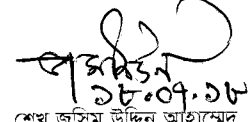 ১৮.০৭.১৮
শেখ জসিম উদ্দিন আহাম্মেদ